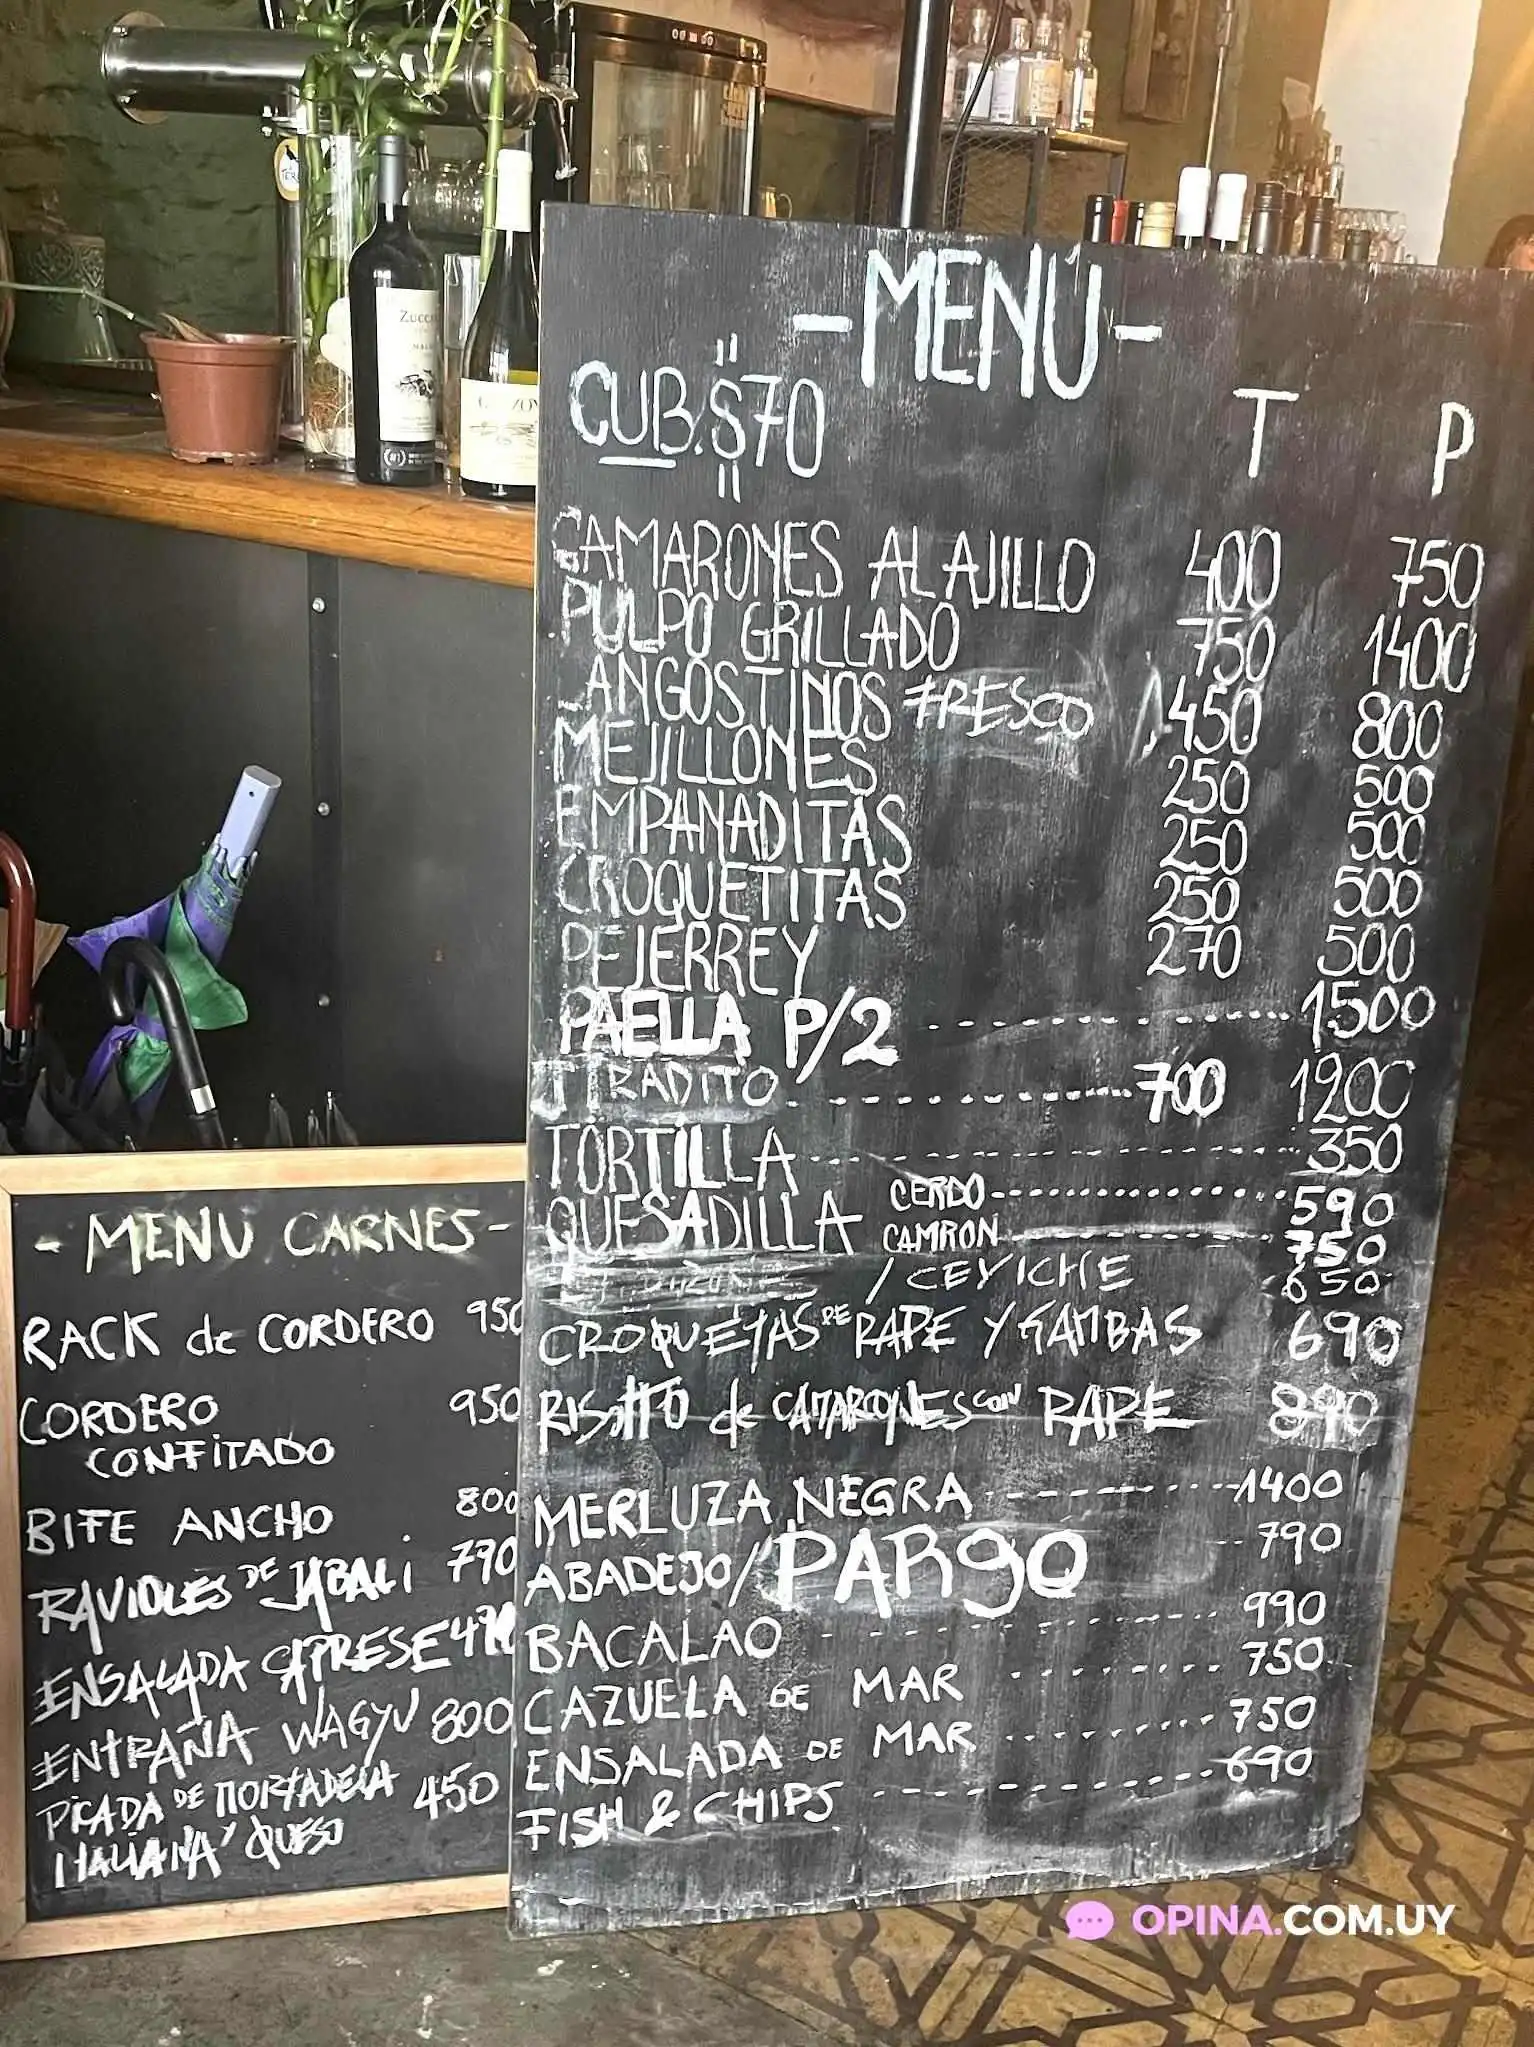 - MENÚ -
CUB. $70
T P
CAMARONES AL AJILLO 400 750
PULPO GRILLADO 750 1400
LANGOSTINOS FRESCO 450 800
MEJILLONES 250 500
EMPANADITAS 250 500
CROQUETITAS 250 500
PEJERREY 270 500
PAELLA P/2 1500
TIRADITO 700 1200
TORTILLA 350
QUESADILLA CERDO 590
CAMRON 750
/ CEVICHE 650
CROQUETAS DE RAPE Y GAMBAS 690
RISOTTO de CAMARONES CON RAPE 890
MERLUZA NEGRA 1400
ABADEJO/PARGO 790
BACALAO 990
CAZUELA DE MAR 750
ENSALADA DE MAR 750
FISH & CHIPS 690
- MENU CARNES -
RACK de CORDERO 950
CORDERO 950
CONFITADO
BIFE ANCHO 800
RAVIOLES DE JABALI 790
ENSALADA CAPRESE
ENTRAÑA WAGYU 800
PICADA DE MORTADELA 450
ITALIANA Y QUESO
OPINA.COM.UY